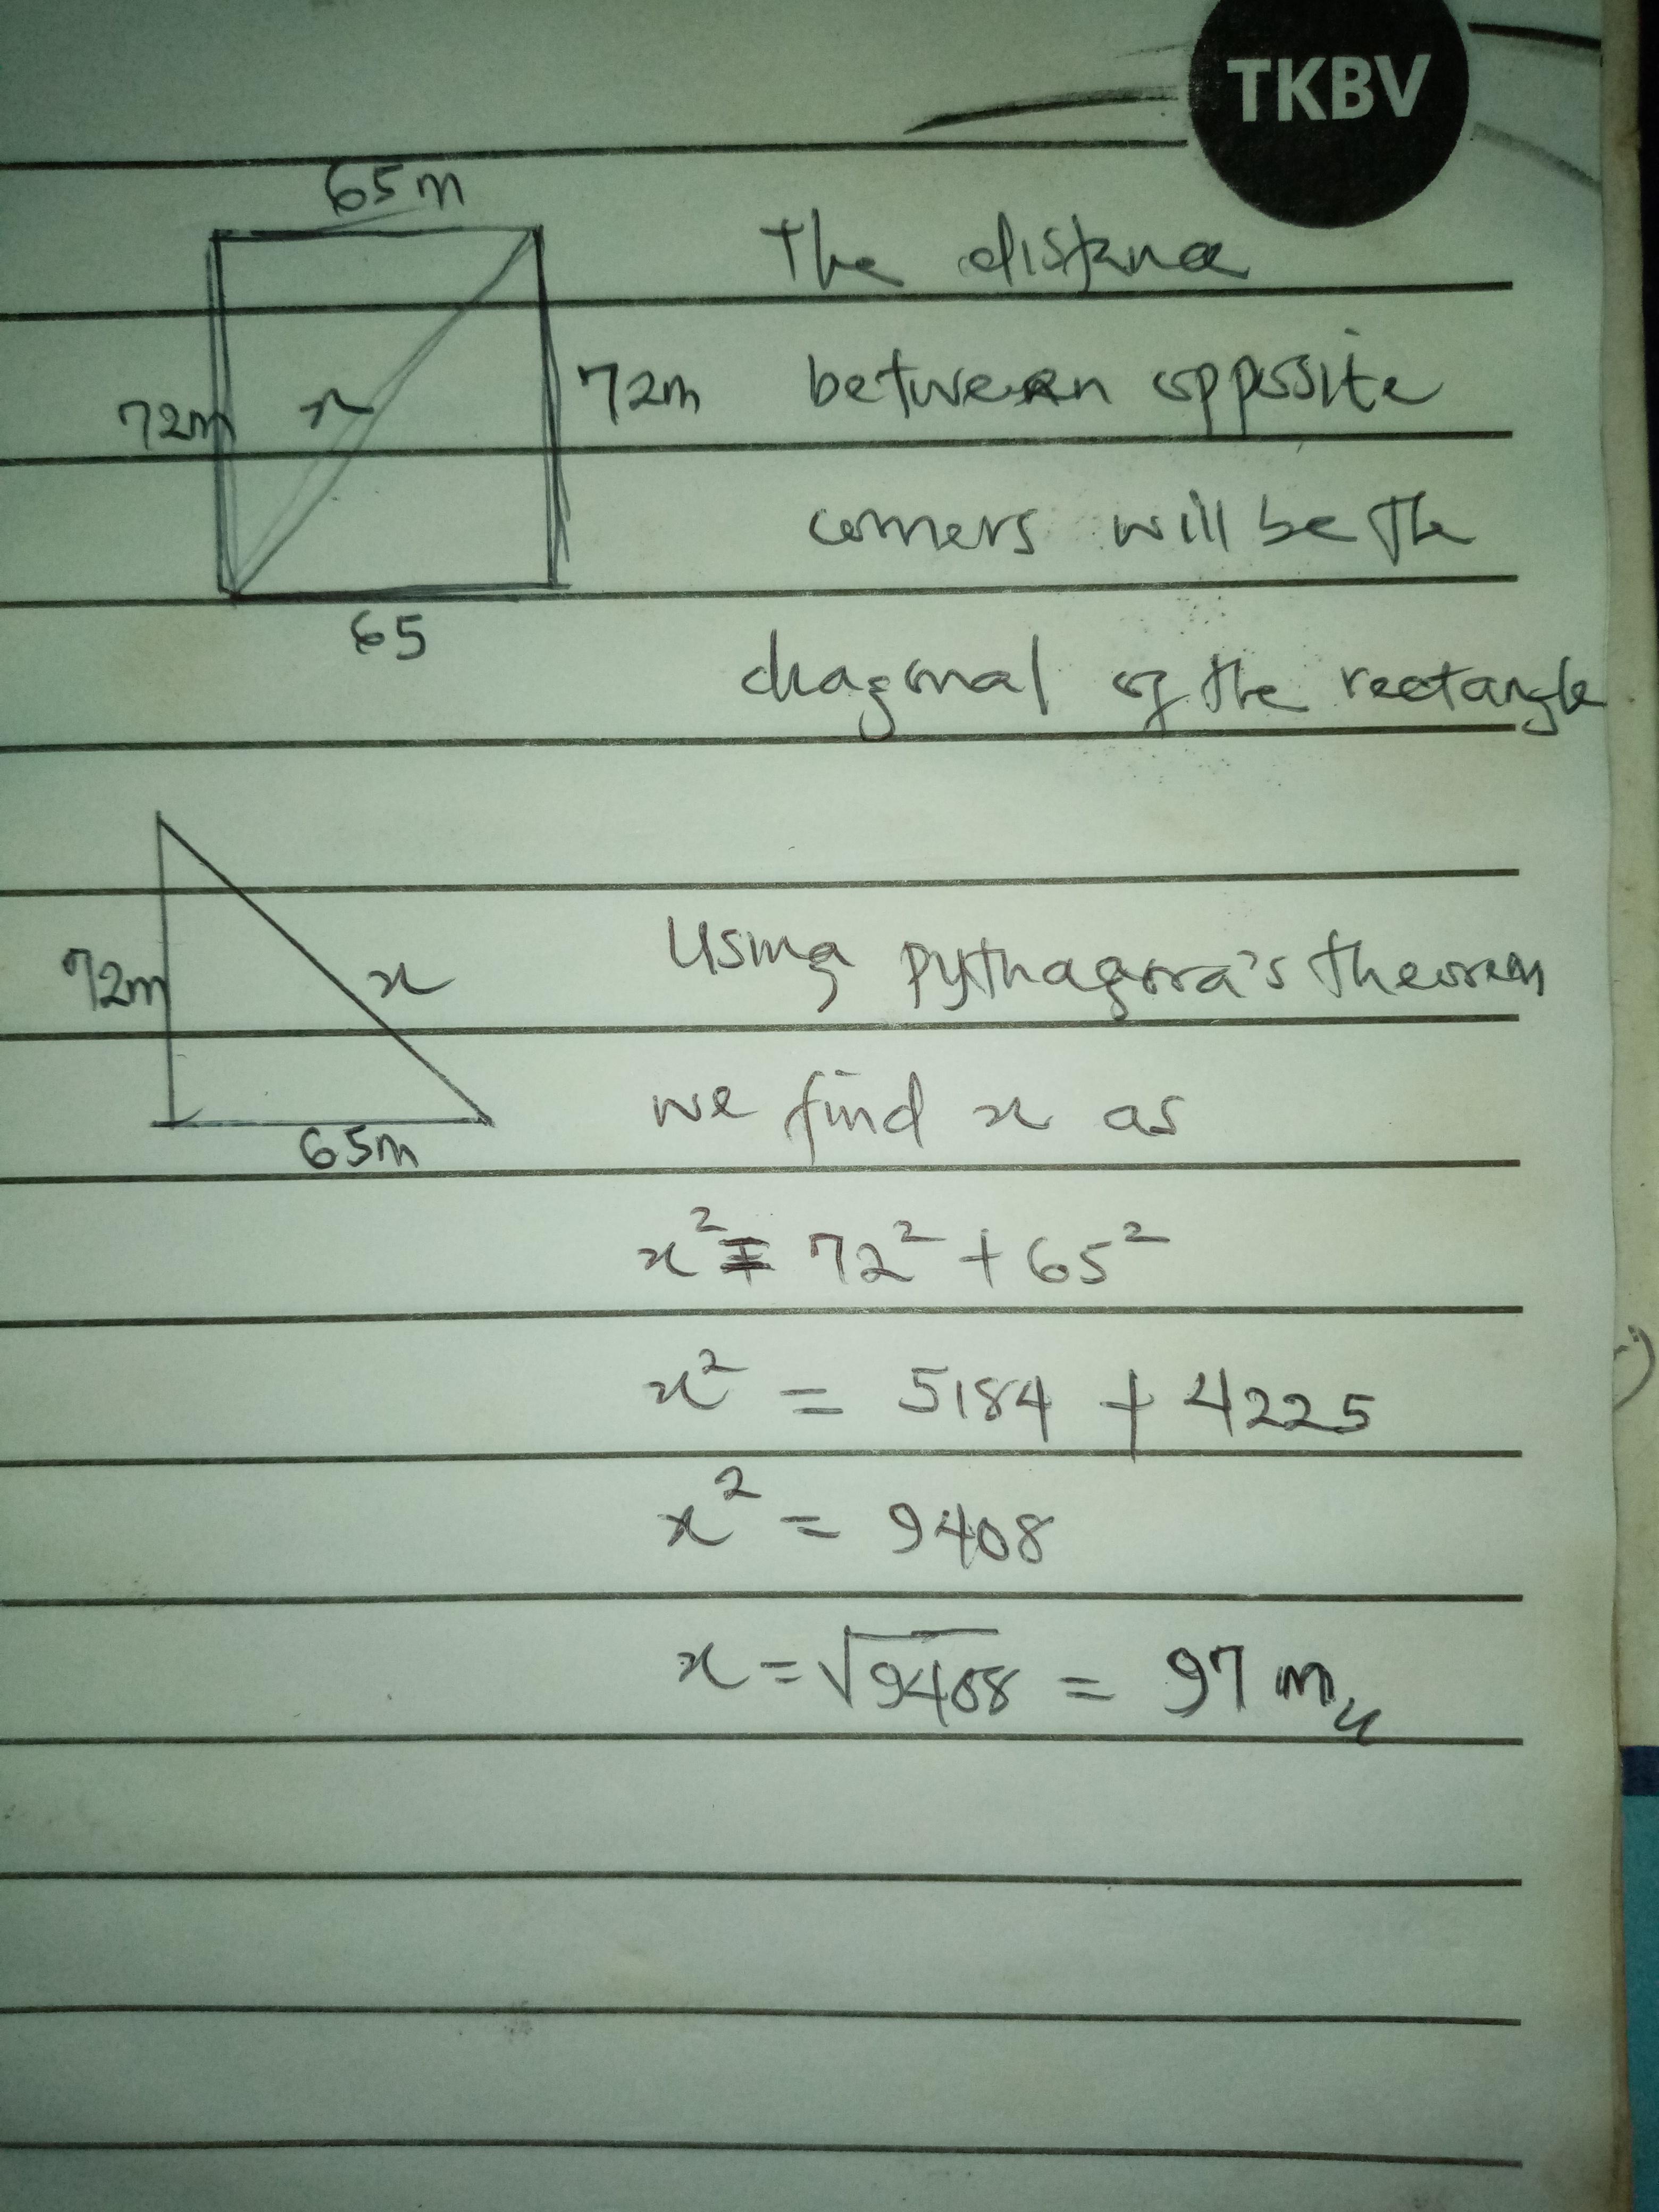 TKBV
65m
The distance
72m x 72m between opposite
corners will be the
65
diagonal of the rectangle
72m x Using pythagora's theorem
we find x as
65m
x² = 72² + 65²
x² = 5184 + 4225
x² = 9408
x = √9408 = 97 m